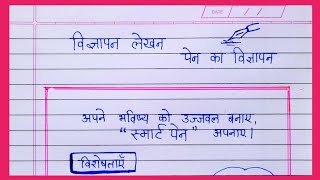 DATE
विज्ञापन लेखन
पेन का विज्ञापन
अपने भविष्य को उज्जवल बनाए,
"स्मार्ट पेन" अपनाए।
विशेषताएँ